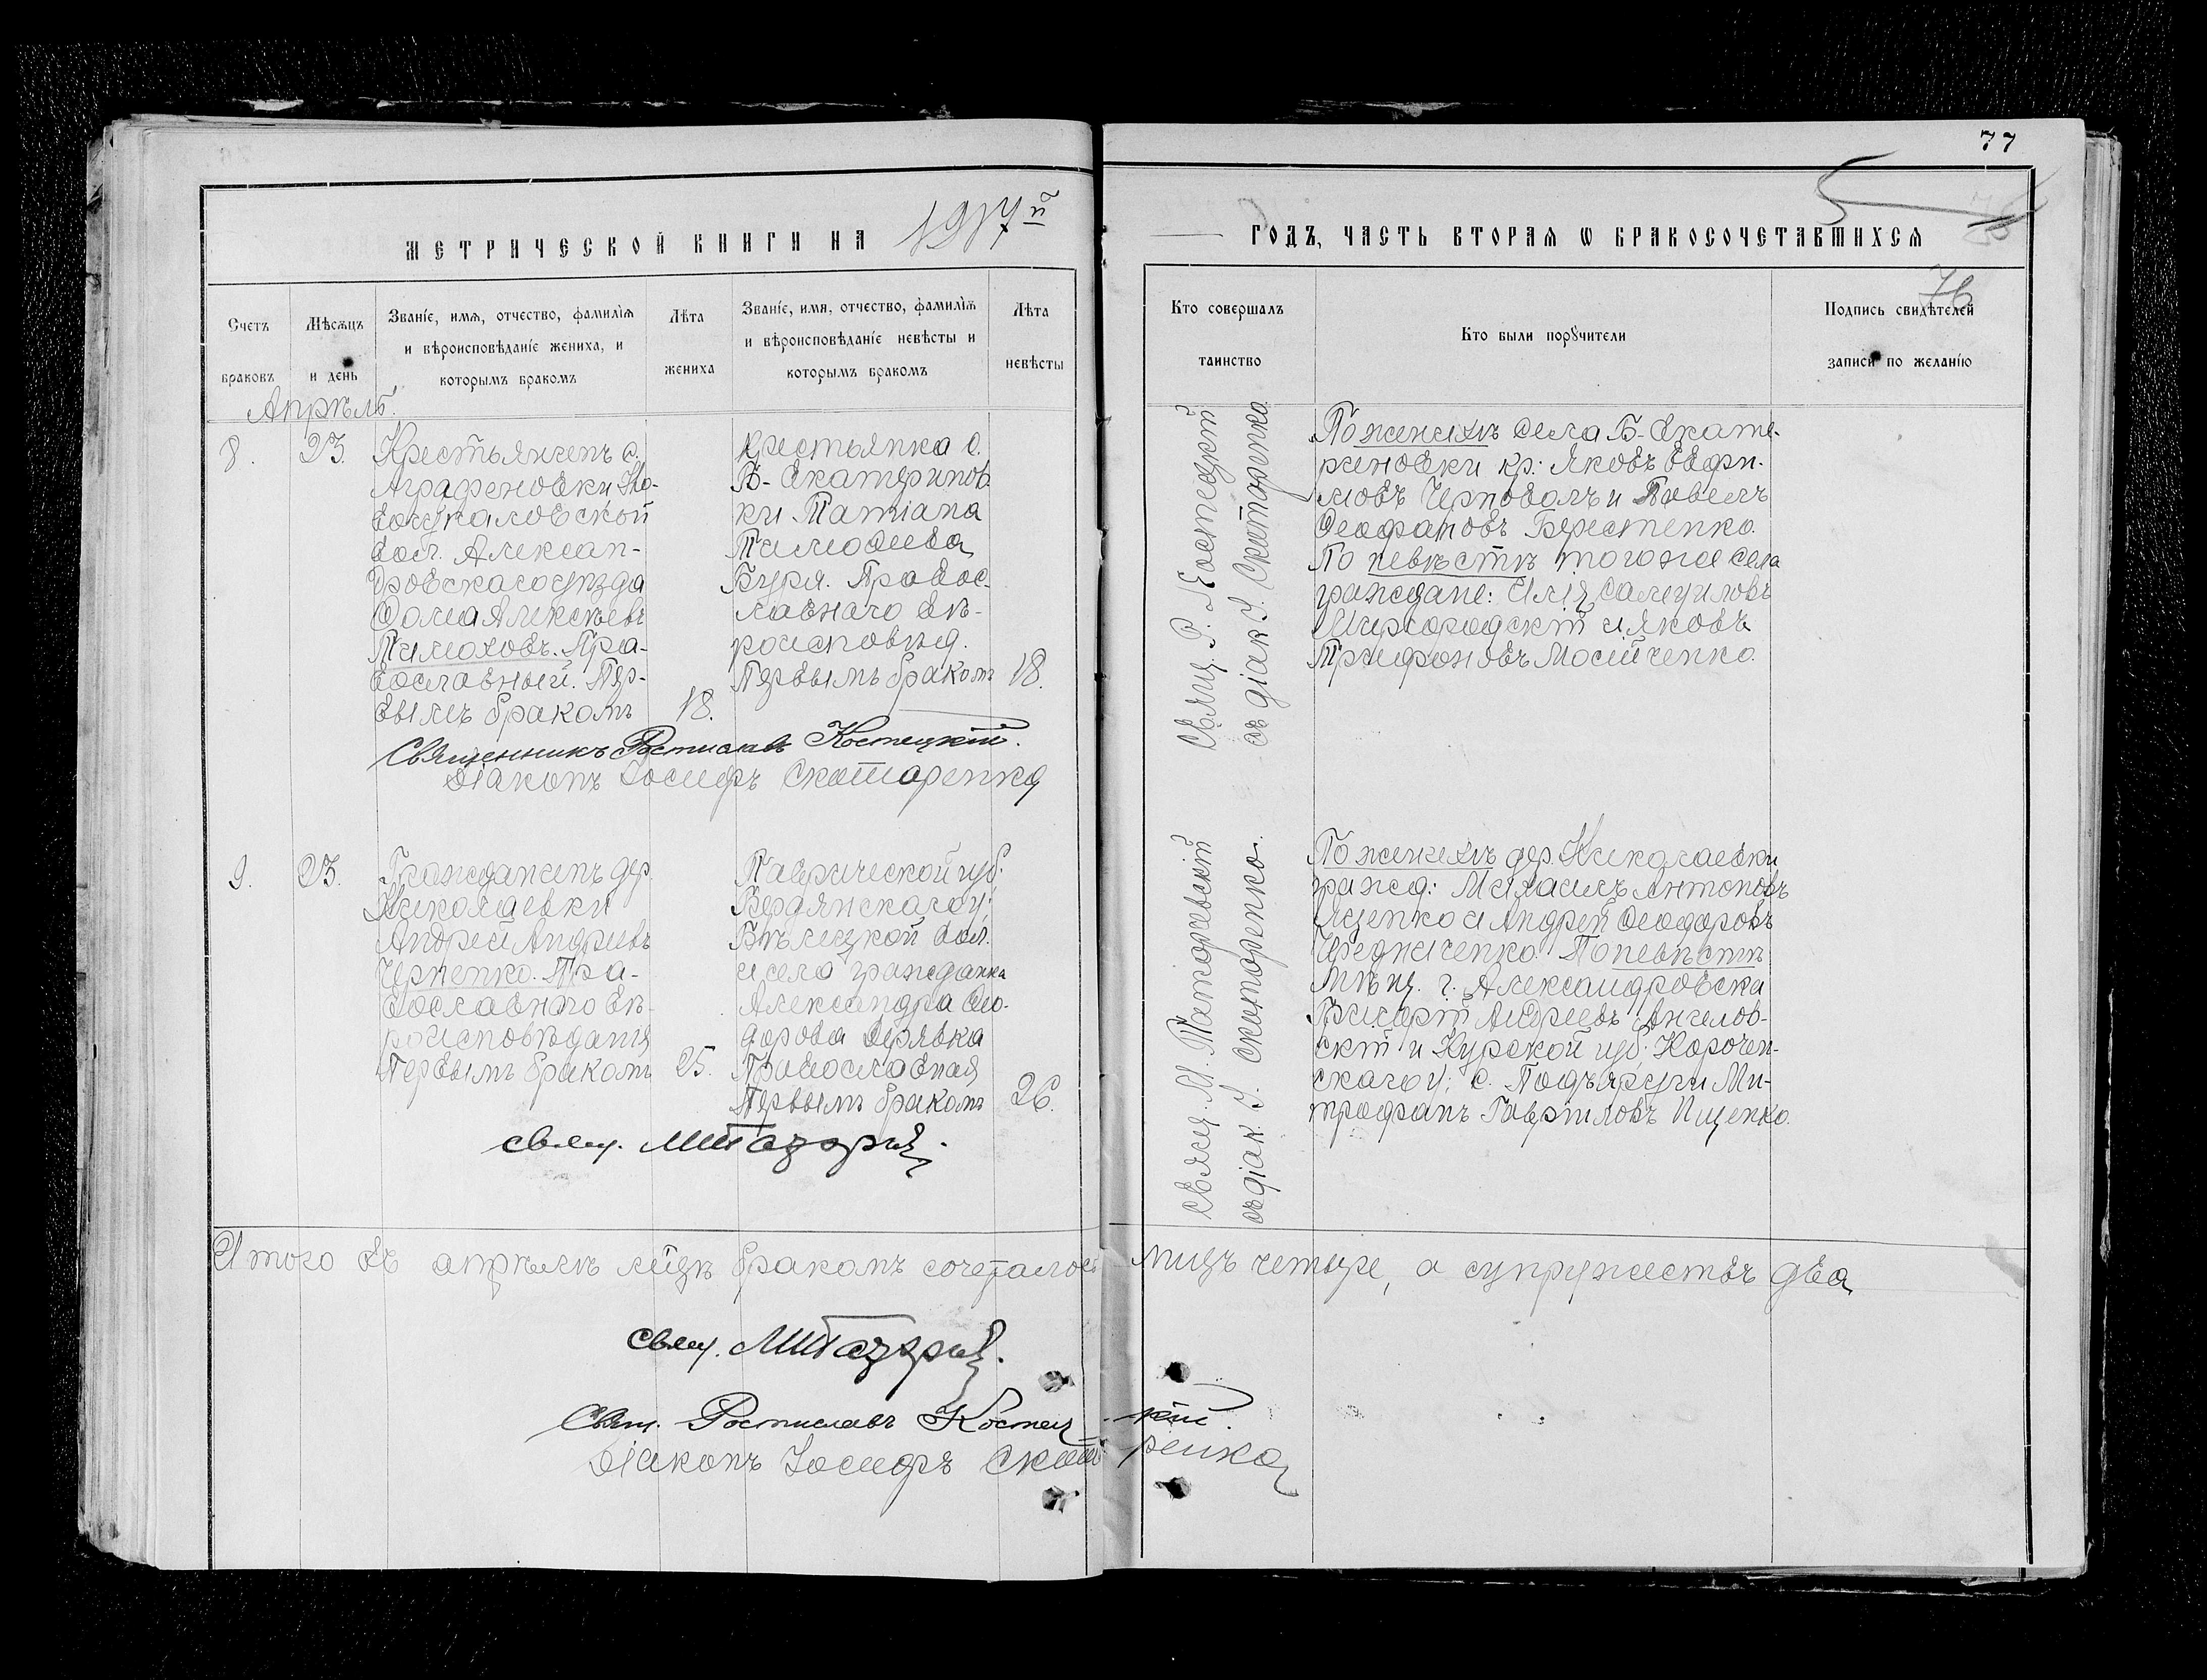 77
МЕТРИЧЕСКОЙ КНИГИ НА 1917й
ГОДЪ, ЧАСТЬ ВТОРАЯ Ѡ БРАКОСОЧЕТАВШИХСЯ
76
Счетъ браковъ
Мѣсяцъ и день
Званіе, имя, отчество, фамилія
и вѣроисповѣданіе жениха, и
которымъ бракомъ
Лѣта
жениха
Званіе, имя, отчество, фамилія
и вѣроисповѣданіе невѣсты и
которымъ бракомъ
Лѣта
невѣсты
Кто совершалъ
таинство
Кто были поручители
Подпись свидѣтелей
записи по желанію
Апрѣль.
8.
23.
Крестьянинъ с.
Аграфеновки Но-
вогупаловской
вол. Алексан-
дровскаго уѣзда
Ѳома Алексѣевъ
Тимоховъ. Пра-
вославный. Пер-
вымъ бракомъ
18.
Крестьянка с.
Б-Екатеринов-
ки Татіана
Тимоѳеева
Буря. Правос-
лавнаго вѣ-
роисповѣд.
Первымъ бракомъ
18.
Священникъ Ростиславъ Костецкій.
Діаконъ Іосифъ Скоторенко
Свящ. Р. Костецкій
съ діак. І. Скоторенко
По женихѣ села Б-Екате-
риновки кр: Яковъ Евфи-
мовъ Черноволъ и Павелъ
Ѳеофановъ Берестенко.
По невѣстѣ того же села
граждане: Илія Самуиловъ
Миргородскій и Яковъ
Трифоновъ Мосійченко.
9.
23.
Гражданинъ дер.
Николаевки
Андрей Андреевъ
Черненко. Пра-
вославнаго вѣ-
роисповѣданія
Первымъ бракомъ
25.
Таврической губ.
Бердянскаго у:
Вѣлецкой вол.
и села гражданка
Александра Ѳео-
дорова Деревка
Православная
Первымъ бракомъ
26.
свящ.
свящ. М.
съ діак. І. Скоторенко.
По женихѣ дер. Николаевки
гражд: Михаилъ Антоновъ
Яценко и Андрей Ѳеодоровъ
Чередниченко. По невѣстѣ
мѣщ. г. Александровска
Андреевъ Ангелов-
скій и Курской губ: Корочен-
скаго у; с. Подъяруги Ми-
трофанъ Гавріиловъ Ищенко.
Итого въ апрѣлѣ м-цѣ бракомъ сочеталось лицъ четыре, а супружествъ два
свящ.
Свящ. Ростиславъ Костецкій.
Діаконъ Іосифъ Скоторенко